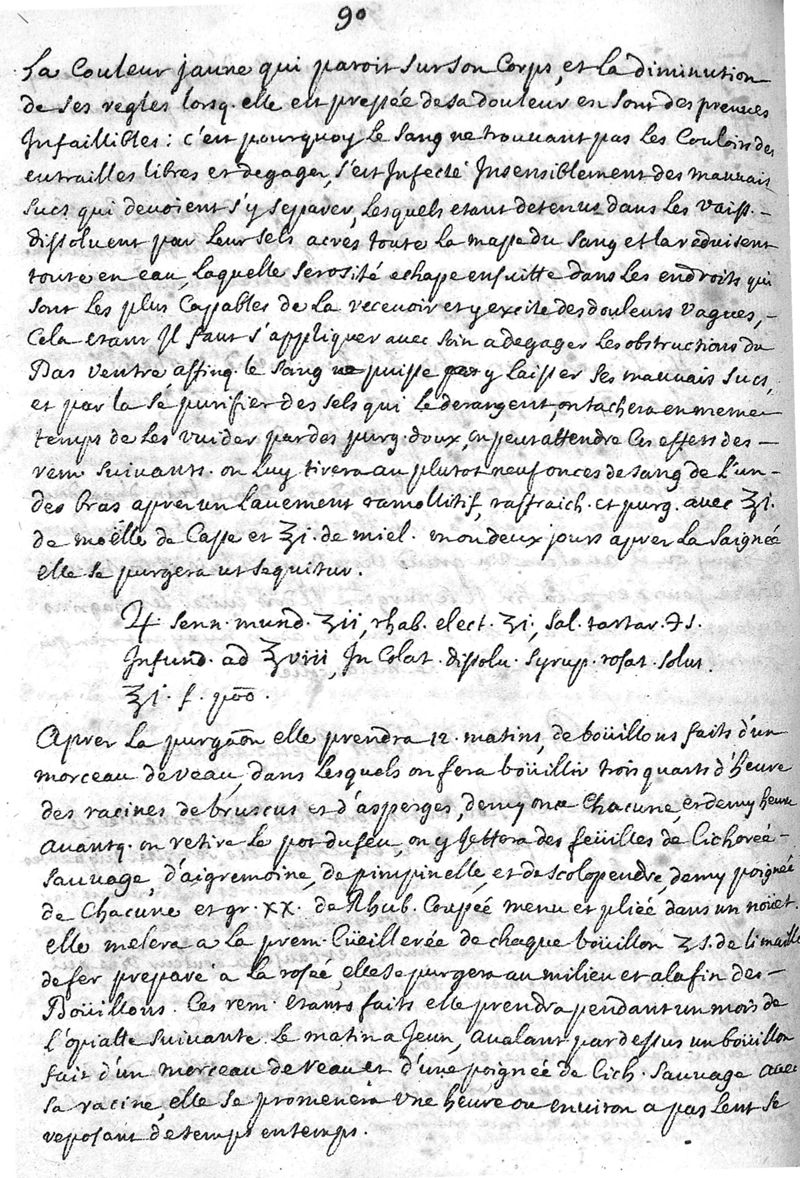 90
La Couleur jaune qui paroit sur son Corps, et la diminution
de ses regles lorsq. elle est pressée de sa douleur en sont des preuves
Infaillibles: c'est pourquoy le sang ne trouvant pas les Couloirs des
entrailles libres et degager, s'est Infecté Insensiblement des mauvais
sucs qui devoient s'y separer, lesquels etant detenus dans les vaiss. -
dissoluent par leur sels acres toute la masse du sang et la reduisent
toute en eau, laquelle serosité echape ensuitte dans les endroits qui
sont les plus Capables de la recevoir et y excite des douleurs vagues, -
Cela etant Il faut s'appliquer avec soin a degager les obstructions du
Bas ventre affinq. le sang puisse y laisser ses mauvais sucs,
et par la se purifier des sels qui le derangent, on tachera en meme
temps de les vuider par des purg. doux, on peut attendre ces effets des -
rem. suivants. on luy tirera au plutot neuf onces de sang de l'un -
des bras apres un Lavement ramollitif, raffraich. et purg. avec ℥i.
de moëlle de Casse et ℥i. de miel. un ou deux jours apres la saignée
elle se purgera ut sequitur.
♃ senn. mund. ʒii, rhab. elect. ʒi, sal. tartar. ℈s.
Infund. ad ℥viii, In Colat. dissolu. syrup. rosat. solut.
℥i. f. poo.
Apres la purgaon elle prendra 12. matins, de boüillons faits d'un
morceau de veau, dans lesquels on fera boüillir trois quarts d'heure
des racines de bruscus et d'asperges, demy once Chacune, et demy heure
avantq. on retire le pot du feu, on y jettera des feüilles de Cichoreé -
sauvage, d'aigremoine, de pimpinelle, et de scolopendre, demy poignée
de Chacune et gr. xx. de Rhub. Coupée menu et pliée dans un noüet.
elle melera a la prem. Cüeillerée de chaque boüillon ʒs. de limaille
de fer preparé a la rosée, elle se purgera au milieu et a la fin des -
Boüillons. Ces rem. etants faits elle prendra pendant un mois de
l'opiatte suivante le matin a Jeun, avalant par dessus un boüillon
fait d'un morceau de veau et d'une poignée de Cich. sauvage avec
sa racine, elle se promenera une heure ou environ a pas lent se
reposant de temps en temps.